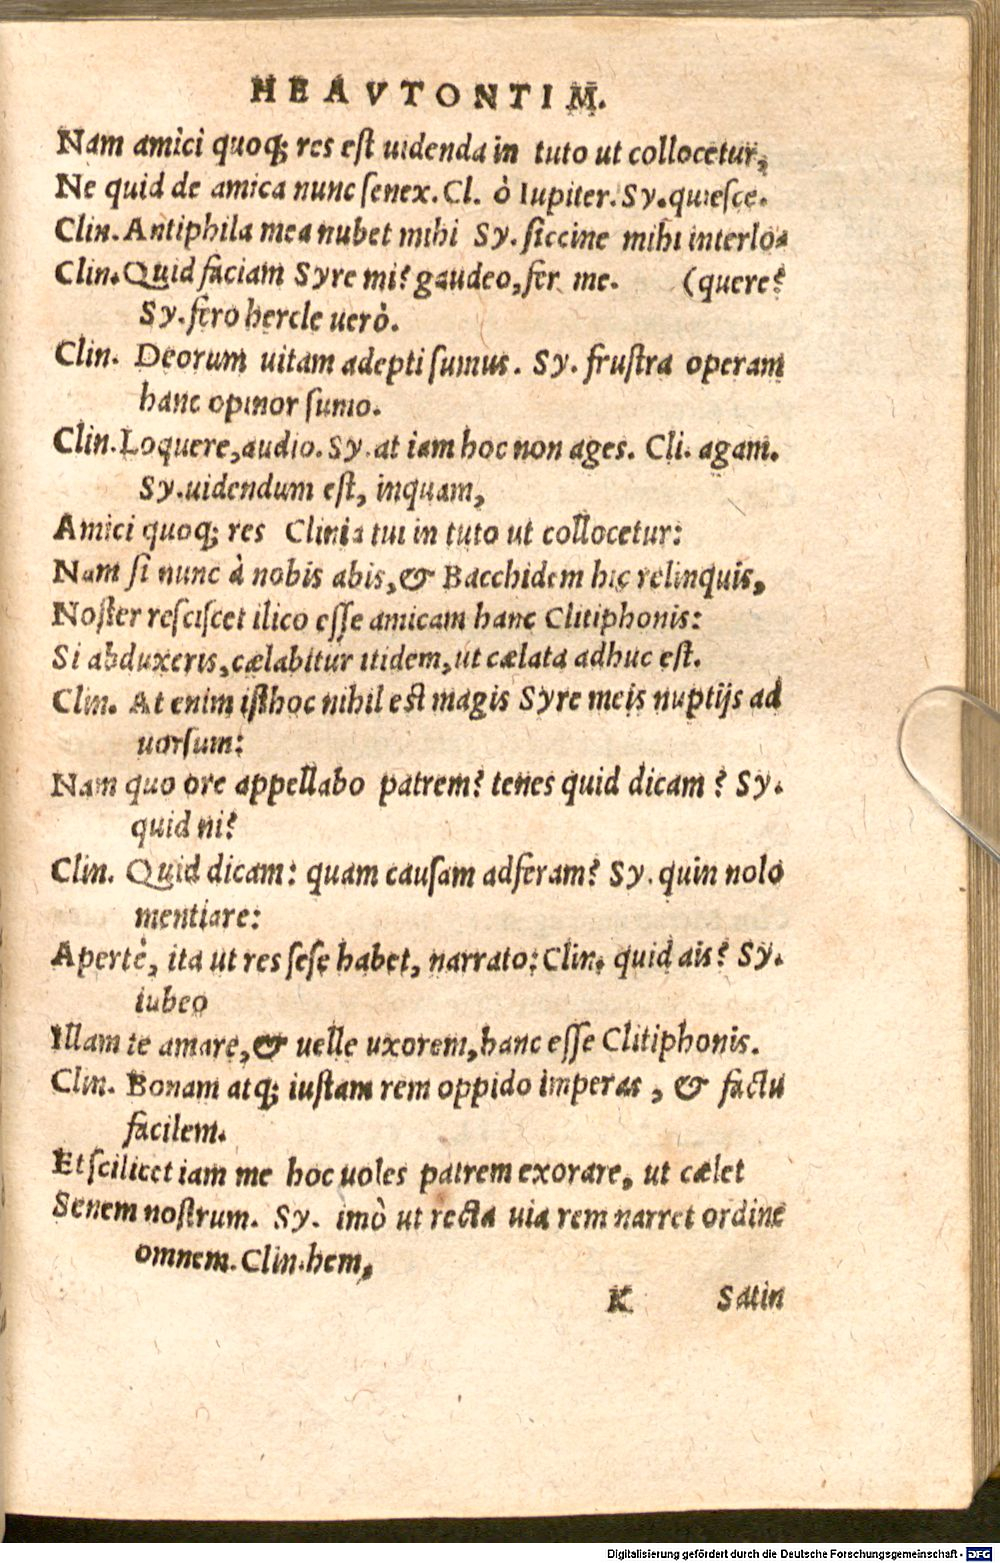 HEAVTONTIM.
Nam amici quoq; res eſt uidenda in tuto ut collocetur,
Ne quid de amica nunc ſenex. Cl. ò Iupiter. Sy. quieſce.
Clin. Antiphila mea nubet mihi Sy. ſiccine mihi interlo-
Clin. Quid faciam Syre mi? gaudeo, fer me. (quere?
Sy. fero hercle uerò.
Clin. Deorum uitam adepti ſumus. Sy. fruſtra operam
hanc opinor ſumo.
Clin. Loquere, audio. Sy. at iam hoc non ages. Cli. agam.
Sy. uidendum eſt, inquam,
Amici quoq; res Clinia tui in tuto ut collocetur:
Nam ſi nunc à nobis abis, & Bacchidem hic relinquis,
Noſter reſciſcet ilico eſſe amicam hanc Clitiphonis:
Si abduxeris, cælabitur itidem, ut cælata adhuc eſt.
Clin. At enim iſthoc nihil eſt magis Syre meis nuptijs ad
uorſum:
Nam quo ore appellabo patrem? tenes quid dicam? Sy.
quid ni?
Clin. Quid dicam: quam cauſam adferam? Sy. quin nolo
mentiare:
Apertè, ita ut res ſeſe habet, narrato: Clin. quid ais? Sy.
iubeo
Illam te amare, & uelle uxorem, hanc eſſe Clitiphonis.
Clin. Bonam atq; iuſtam rem oppido imperas, & factu
facilem.
Et ſcilicet iam me hoc uoles patrem exorare, ut cælet
Senem noſtrum. Sy. imò ut recta uia rem narret ordine
omnem. Clin. hem,
K Satin
Digitalisierung gefördert durch die Deutsche Forschungsgemeinschaft - DFG